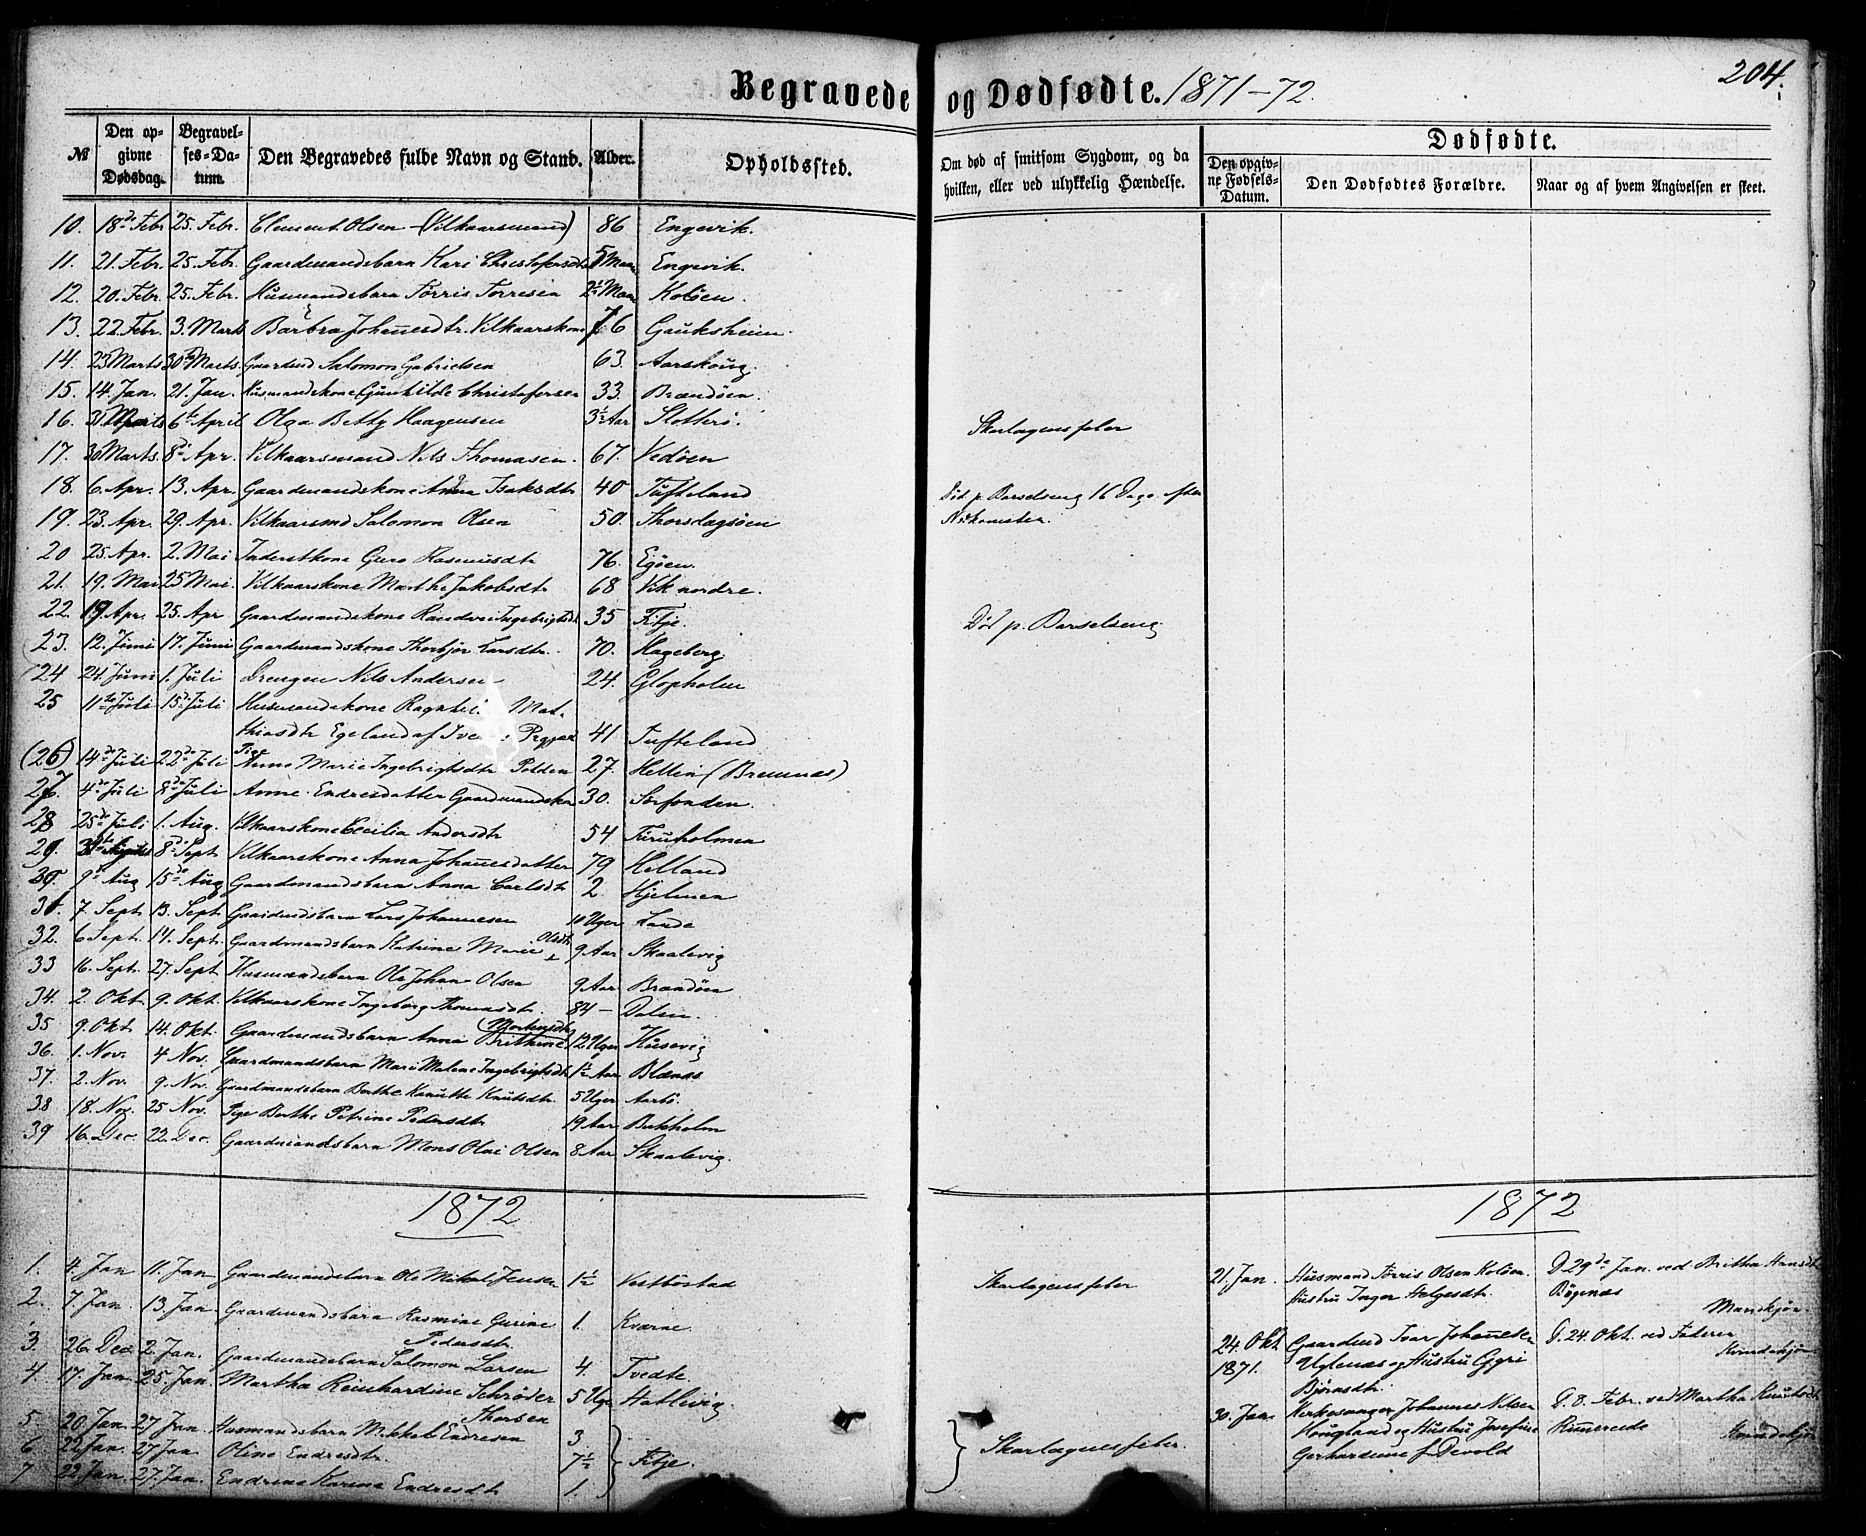 Begravede og Dødfødte. 1871-72. 204.
№ Den opgivne Dødsdag. Begravelses-Datum. Den Begravedes fulde Navn og Stand. Alder. Opholdssted. Om død af smitsom Sygdom, og da hvilken, eller ved ulykkelig Hændelse. Dødfødte. Den opgivne Fødsels-Datum. Den Dødfødtes Forældre. Naar og af hvem Angivelsen er skeet.
10. 18de Febr 25. Febr. Clement Olsen (Vilkaarsmand) 86 Engevik.
11. 21. Febr. 25. Febr. Gaardmandsbarn Kari Christofersdtr Maan Engevik.
12. 20. Febr. 25. Febr. Husmandsbarn Tørris Torresen 2½ Maan Koløen.
13. 22. Febr. 3. Marts Barbra Johannesdtr. Vilkaarskone 76 Gauksheim.
14. 23 Marts 30te Marts. Gaardmd Salomon Gabrielsen 63. Aarskoug.
15. 14. Jan. 21. Jan. Husmandskone Gunhilde Christofersen 33. Brandøen.
16. 31 Marts 6te April Olga Betty Haagensen 3½ Aar Slotterø. Skarlagensfeber
17. 30 Marts. 8de Apr. Vilkaarsmand Nils Thomasen. 67. Vedøen
18. 6. Apr. 13. Apr. Gaardmandskone Anna Isaksdtr 40 Tufteland Død p. Barselseng 16 Dage efter
19. 23. Apr. 29. Apr. Vilkaarsmd Salomon Olsen 50. Thorsdagsøen Nedkomsten.
20 25. Apr. 2. Mai Inderstkone Guro Rasmusdtr 76. Egøen.
21. 19. Mai 25 Mai. Vilkaarskone Martha Jakobsdtr 68 Vik nordre.
22. 19 Apr. 25. Apr Gaardmandskone Randvei Ingebrigtsdtr 35 Fitje. Død p. Barselseng
23. 12. Juni 17. Juni Gaardmandskone Thorbjør Larsdtr. 70. Hageberg
24 24. Juni 1. Juli Drengen Nils Andersen 24. Glopholm
25 11te Juli 15de Juli Husmandskone Ragnhil Mat-
thiasdtr Egeland af 41 Tufteland
(26) 14de Juli 22de Juli Pige Anne Marie Ingebrigtsdtr Polden 27. Hellen (Bremnæs)
27. 4de Juli 8de Juli Anne Endresdatter Gaardmandskon 30. Sørfonden.
28 25de Juli 1. Aug. Vilkaarskone Cecilia Andersdtr 54 Furuholmen
29. 8de Sept Vilkaarskone Anna Johannesdatter 79 Helland
30. 9de Aug 15de Aug Gaardmandsbarn Anna Carlsdtr 2. Hjelmen
31. 7. Sept 13. Sept Gaardmdsbarn Lars Johannesen 10 Uger Lande
32. 6 Sept 14. Sept. Gaardmandsbarn Katrine Marie Olsdtr 9 Aar Skaalevig
33 16. Sept. 27. Sept Husmandsbarn Ole Johan Olsen 9 Aar Brandøen
34. 2. Okt 9. Okt. Vilkaarskone Ingeborg Thomasdtr. 84 – Dalen.
35 9. Okt 14. Okt. Gaardmandsbarn Anna Brithine (Mortensdtr) 12 Uger Husevig
36. 1. Nov. 4 Nov. Gaardmandsbarn Mari Malene Ingebrigtsdtr 1½ Aar Blænæs
37. 2. Nov. 9. Nov. Gaardmandsbarn Berthe Knutsdtr. 5 Uger Aarbø.
38 18. Nov. 25 Nov. Pige Berthe Petrine Pedersdtr 19 Aar Bukholm
39 16. Dec. 22. Dec. Gaardmandsbarn Mons Olai Olsen 8 Aar Skaalevig.
1872 1872
1. 4. Jan 11. Jan Gaardmandsbarn Ole Mikal Jensen 1½ Vestbøstad Skarlagensfeber 21. Jan. Husmand Tørris Olsen Koløen. D 29de Jan. ved Britha Hansdtr
Hustru Inger Helgesdtr. Bøgenæs
2. 7. Jan 13. Jan. Gaardmandsbarn Rasmine Gurine Pedersdtr. 1. Kværne. Mandkjøn.
3. 26. Dec. 2. Jan. Gaardmandsbarn Salomon Larsen 4. Tvedte. 24. Okt. Gaardmd Ivar Johannesen D. 24. Okt. ved Faderen
1871. Uglenæs og Hustru Bjørnsdtr. Kvindekjøn
4 17. Jan. 25. Jan. Martha Reinhardine Schrøder Thorsen 5 Uger Hatlevig. 30. Jan. Kirkesanger Johannes Nilsen D. 8. Febr. ved Martha Knutsdtr
5 20. Jan. 27 Jan. Husmandsbarn Mikkel Endresen 3. Hougland og Hustru Josefine
6 22. Jan. 27 Jan. Oline Endresdtr. 7½ Fitje. Skarlagensfeber. Gerhardine f. Devold Kvindekjøn
7 22 Jan. 27. Jan. Endrine Karina Endresdtr 1.